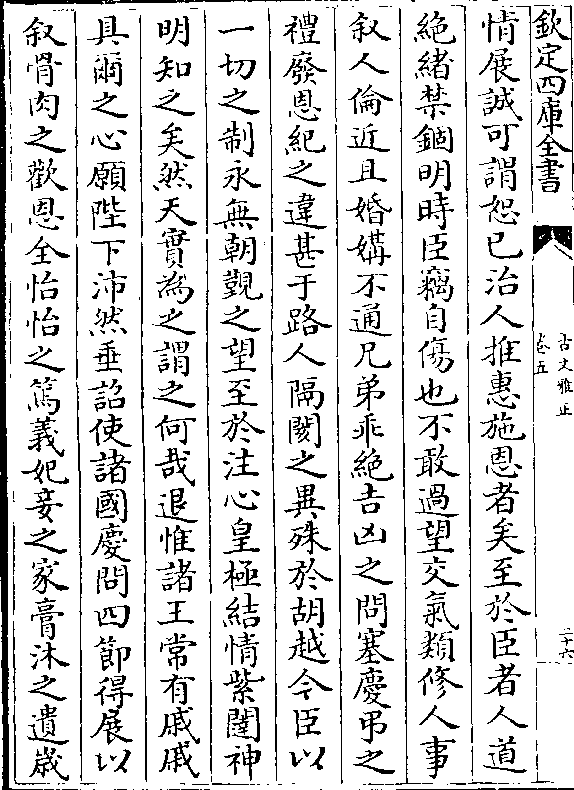 欽定四庫全書
古文雅正
卷五
三十六
情展誠可謂恕已治人推惠施恩者矣至於臣者人道
絶緒禁錮明時臣竊自傷也不敢過望交氣類修人事
叙人倫近且婚媾不通兄弟乖絶吉凶之問塞慶弔之
禮廢恩紀之違甚于路人隔閡之異殊於胡越今臣以
一切之制永無朝覲之望至於注心皇極結情紫闥神
明知之矣然天實為之謂之何哉退惟諸王常有戚戚
具爾之心願陛下沛然垂詔使諸國慶問四節得展以
叙骨肉之歡恩全怡怡之篤義妃妾之家膏沐之遺歳